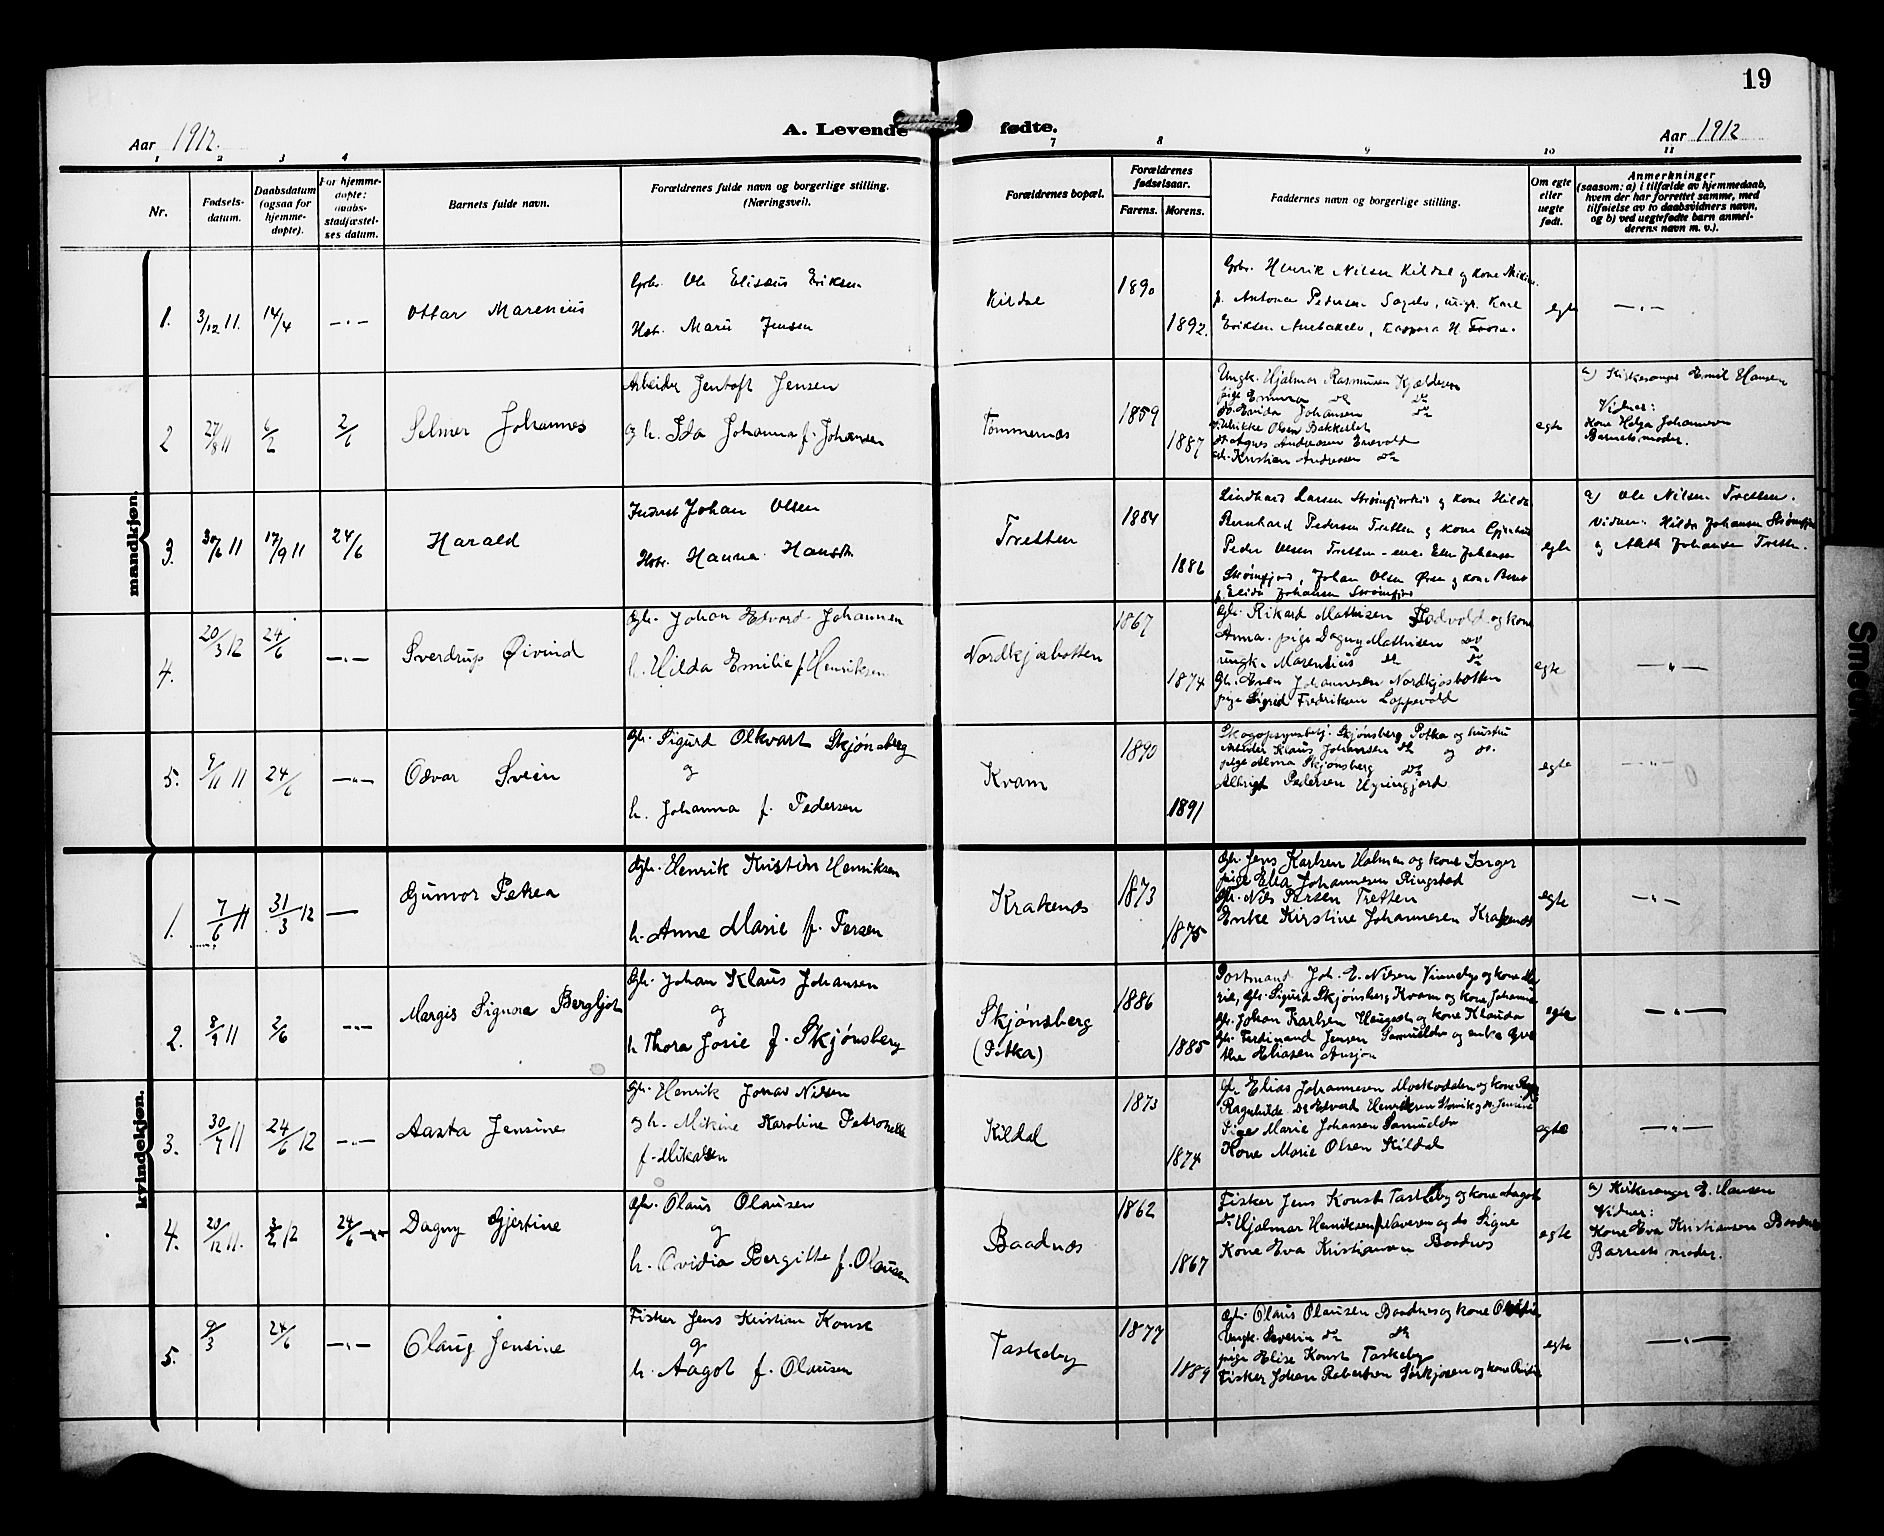 19
A. Levende fødte.
Aar 1912.
Aar 1912
1 2 3 4 7 8 9 10 11
Nr.
Fødsels-
datum.
Daabsdatum
(ogsaa for
hjemme-
døpte).
For hjemme-
døpte:
daabs-
stadfæstel-
ses datum.
Barnets fulde navn.
Forældrenes fulde navn og borgerlige stilling.
(Næringsvei).
Forældrenes bopæl.
Forældrenes
fødselsaar.
Farens. Morens.
Faddernes navn og borgerlige stilling.
Om egte
eller
uegte
født.
Anmerkninger
(saasom: a) i tilfælde av hjemmedaab,
hvem der har forrettet samme, med
tilføielse av to daabsvidners navn,
og b) ved uegtefødte barn anmel-
derens navn m. v.).
mandkjøn.
1. 3/12 11. 14/4 —"— Ottar Marenius
Gbr. Ole Elisæus Eriksen
Hstr. Marie Jensen
Kildal 1890 1892.
Gbr. Henrik Nilsen Kildal og kone
f. Antona Pedersen
Eriksen
egte —"—
2 27/8 11 6/2 2/6 Selmer Johannes
Arbeider Jentoft Jensen
og h. Ida Johanna f. Johansen
Tømmernæs 1859 1887
Ungk. Hjalmar Rasmusen
pige Emma do do
do. Evida Johansen do
Olsen Bakkeslet
do Agnes Andreasen
Kristian Andreasen do
egte
a) Kirkesanger Emil Hansen
Vidner:
Kone Helga Johannesen
Barnets moder.
3. 30/6 11 17/9 11 24/6 Harald
Inderst Johan Olsen
Hstr. Hanna Hansdtr
Tretten 1884 1886
Lindhard Larsen Strømfjord og kone Hilda
Bernhard Pedersen Tretten og kone
Peder Olsen Tretten
Strømfjord, Johan Olsen og kone
f. Elida Johansen Strømfjord
egte
a) Ole Nilsen Tretten.
Vidner: Hilda Johansen Strømfjord
og Johansen Tretten.
4. 20/3 12 24/6 —"— Sverdrup Øivind
Gbr. Johan Edvard Johannesen
h. Hilda Emilie f. Henriksen
Nordkjosbotten 1867 1874
Gbr. Rikard Mathisen og kone
Anna. pige Dagny Mathisen do
ungk. Marentius do do
Gbr. Even Johannesen Nordkjosbotten
pige Sigrid Fredriksen Loppevold
egte —"—
5. 9/11 11 24/6 —"— Odvar Svein
Gbr. Sigurd Olkvart Skjønsberg
og
h. Johanna f. Pedersen
Kvam 1890 1891
Skogopsynsbetj. Skjønsberg Potka og hustru
Arbeider Klaus Johansen do og do.
pige Alma Skjønsberg do
Albrigt Pedersen
egte —"—
kvindekjøn.
1. 7/6 11 31/3 12 — Gunvor Petrea
Gbr. Henrik Kristian Henriksen
h. Anne Marie f. Persen
Krakenæs 1873 1875
Gbr. Jens Karlsen Holmen og kone Inger
pige Ella Johannesen Ringstad
Gbr. Nils Persen Tretten
Enke Kirstine Johannesen Krakenæs
egte —"—
2. 8/9 11 2/6 —"— Margis Signora Bergljot
Gbr. Johan Klaus Johansen
og
h Thora Josie f. Skjønsberg
Skjønsberg
(Potka)
1886 1885
Postmand Joh. E. Nilsen og kone Ma-
rie, Gbr. Sigurd Skjønsberg Kvam og kone Johanna
Gbr. Johan Karlsen og kone Klauda
Gbr. Ferdinand Jensen og enke
Eliasen
egte —"—
3. 30/7 11 24/6 12 —"— Aasta Jensine
Gbr. Henrik Jonas Nilsen
og h. Mikine Karoline Petronelle
f. Mikalsen
Kildal 1873 1874
Gbr. Elias Johannesen og kone
Ragnhilde. Do Edvard Henriksen
Pige Marie Johansen
Kone Marie Olsen Kildal
egte —"—
4. 20/12 11. 3/2 12 24/6 —"— Dagny Gjertine
Gbr. Olaus Olausen
og
h. Ovidia Bergitte f. Olausen
Baadnæs 1862 1867
Fisker Jens Konst Taskeby og kone Aagot
do Hjalmar Henriksen og do Signe
Kone Eva Kristiansen Baadnes
egte
a) Kirkesanger E. Hansen
Vidner:
Kone Eva Kristiansen Baadnæs
Barnets moder.
5. 9/3 24/6 —"— Olaug Jensine
Fisker Jens Kristian Konst
og
h. Aagot f. Olausen
Taskeby 1877 1889
Gbr. Olaus Olausen Baadnes og kone
Ungk. Severin do do
pige Elise Konst Taskeby
Fisker Johan Robertsen Sørkjosen og kone
egte —"—